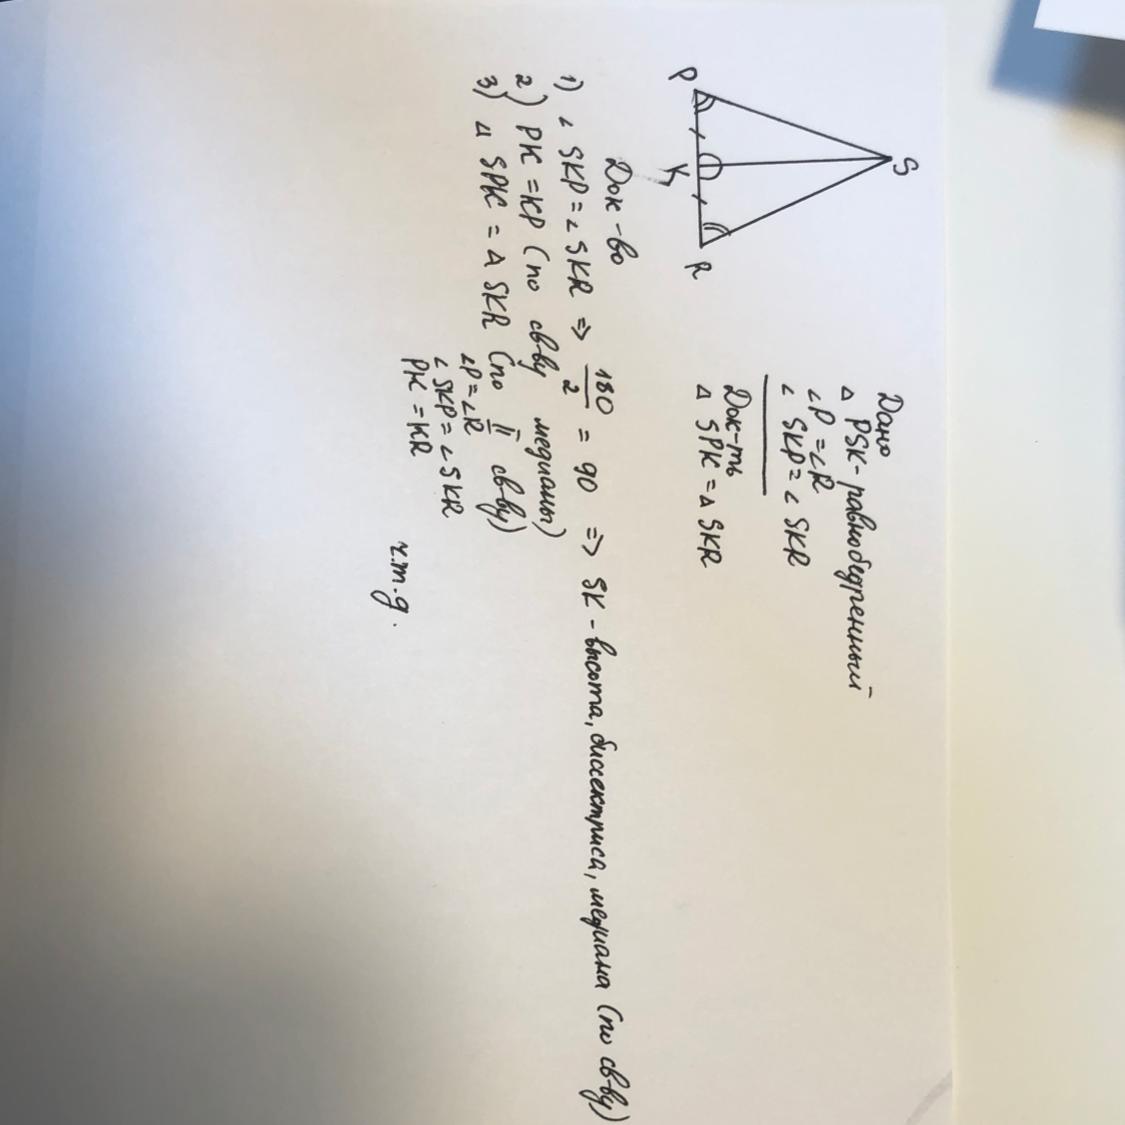 S
P
K
R
Дано
△ PSK - равнобедренный
∠P = ∠R
∠ SKP = ∠ SKR
Док-ть
△ SPK = △ SKR
Док-во
1) ∠ SKP = ∠ SKR => 180/2 = 90 => SK - высота, биссектриса, медиана (по св-ву)
2) PK = KP (по св-ву медианы)
3) △ SPK = △ SKR (по II св-ву)
∠P = ∠R
∠ SKP = ∠ SKR
PK = KR
ч.т.д.